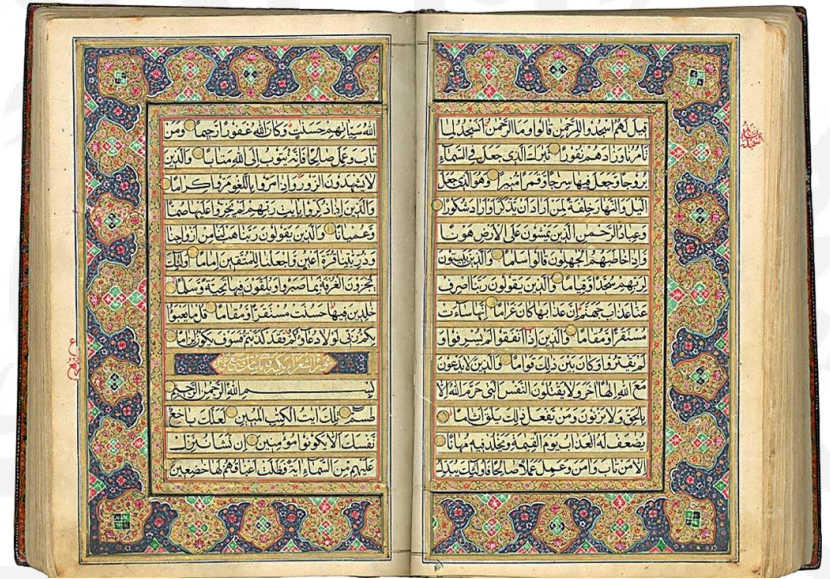 قيل لهم اسجدوا للرحمن قالوا وما الرحمن انسجد لما
تأمرنا وزادهم نفورا تبارك الذي جعل في السماء
بروجا وجعل فيها سرجا وقمرا منيرا وهو الذي جعل
اليل والنهار خلفة لمن اراد ان يذكر او اراد شكورا
وعباد الرحمن الذين يمشون على الارض هونا
واذا خاطبهم الجهلون قالوا سلاما والذين يبيتون
لربهم سجدا وقياما والذين يقولون ربنا اصرف
عنا عذاب جهنم ان عذابها كان غراما انها ساءت
مستقرا ومقاما والذين اذا انفقوا لم يسرفوا و
لم يقتروا وكان بين ذلك قواما والذين لا يدعون
مع الله الها اخر ولا يقتلون النفس التي حرم الله الا
بالحق ولا يزنون ومن يفعل ذلك يلق اثاما
يضعف له العذاب يوم القيمة ويخلد فيه مهانا
الا من تاب وامن وعمل عملا صالحا فاولئك يبدل
الله سياتهم حسنت وكان الله غفورا رحيما ومن
تاب وعمل صالحا فانه يتوب الى الله متابا والذين
لا يشهدون الزور واذا مروا باللغو مروا كراما
والذين اذا ذكروا بايت ربهم لم يخروا عليها صما
وعميانا والذين يقولون ربنا هب لنا من ازواجنا
وذريتنا قرة اعين واجعلنا للمتقين اماما اولئك
يجزون الغرفة بما صبروا ويلقون فيها تحية وسلما
خلدين فيها حسنت مستقرا ومقاما قل ما يعبؤا
بكم ربي لولا دعاؤكم فقد كذبتم فسوف يكون لزاما
بسم الله الرحمن الرحيم
طسم تلك ايت الكتب المبين لعلك باخع
نفسك الا يكونوا مؤمنين ان نشا ننزل
عليهم من السماء اية فظلت اعناقهم لها خضعين